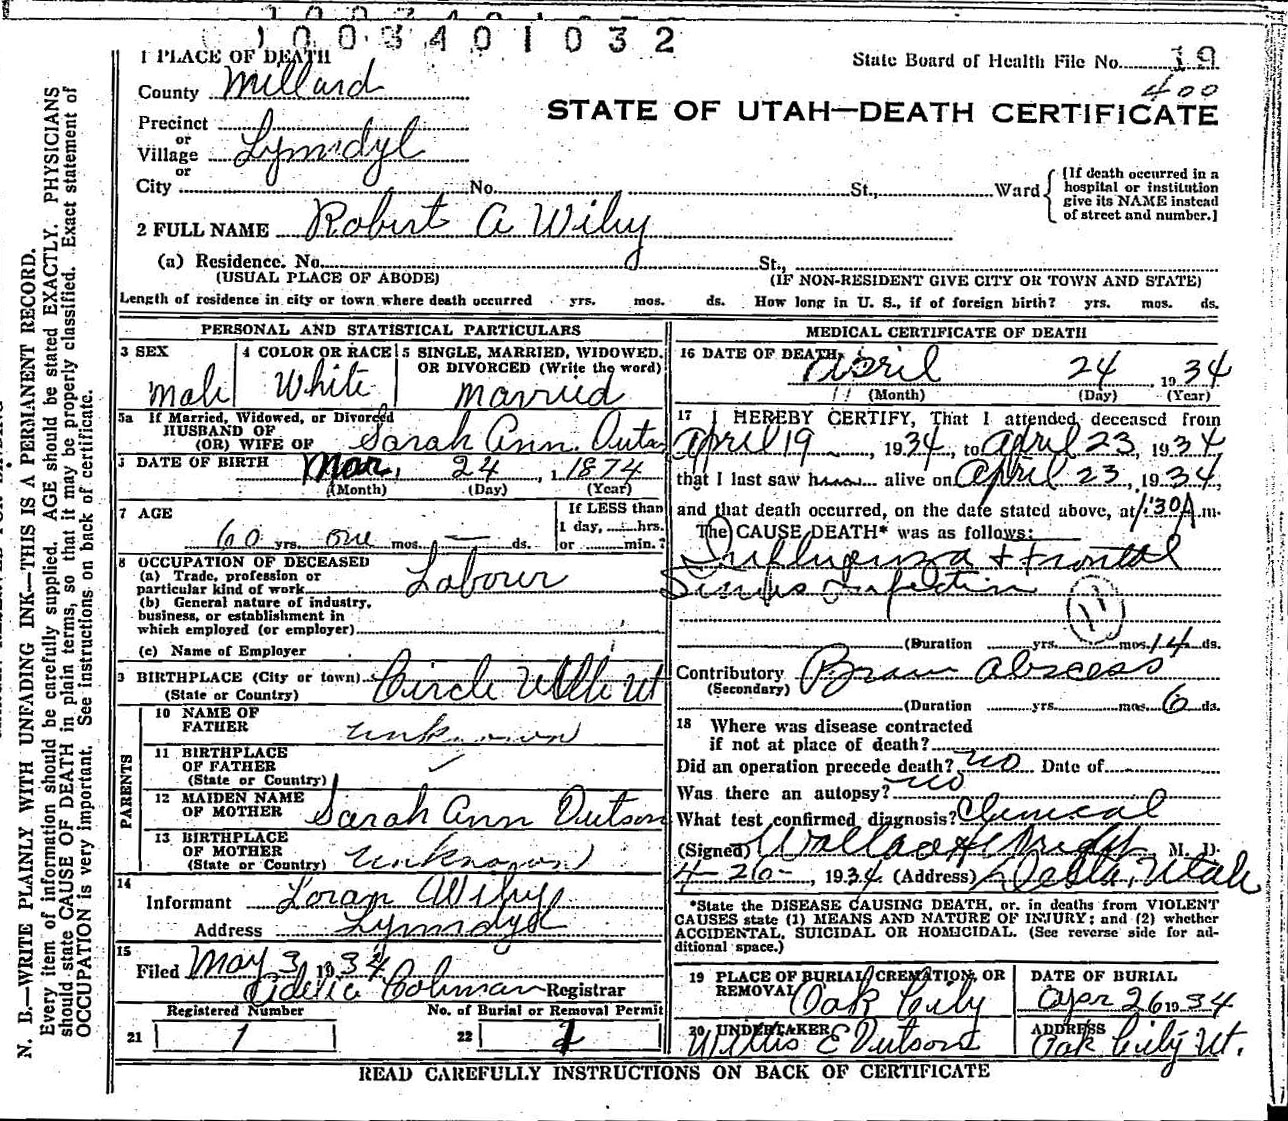 1003401032
1 PLACE OF DEATH
State Board of Health File No. 19
400
County Millard
STATE OF UTAH—DEATH CERTIFICATE
Precinct
or
Village Lynndyl
or
City No. St., Ward
[If death occurred in a hospital or institution give its NAME instead of street and number.]
2 FULL NAME Robert A Wiley
(a) Residence. No. St.,
(USUAL PLACE OF ABODE) (IF NON-RESIDENT GIVE CITY OR TOWN AND STATE)
Length of residence in city or town where death occurred yrs. mos. ds. How long in U. S., if of foreign birth? yrs. mos. ds.
PERSONAL AND STATISTICAL PARTICULARS
3 SEX Male
4 COLOR OR RACE White
5 SINGLE, MARRIED, WIDOWED, OR DIVORCED (Write the word) Married
5a If Married, Widowed, or Divorced
HUSBAND OF
(OR) WIFE OF Sarah Ann Dutson
DATE OF BIRTH Mar, 24, 1874
(Month) (Day) (Year)
7 AGE 60 yrs. one mos. — ds.
If LESS than 1 day, hrs. or min.?
8 OCCUPATION OF DECEASED
(a) Trade, profession or particular kind of work Labour
(b) General nature of industry, business, or establishment in which employed (or employer)
(c) Name of Employer
9 BIRTHPLACE (City or town) Circle Ville Ut
(State or Country)
PARENTS
10 NAME OF FATHER unknown
11 BIRTHPLACE OF FATHER
(State or Country)
12 MAIDEN NAME OF MOTHER Sarah Ann Dutson
13 BIRTHPLACE OF MOTHER
(State or Country) unknown
14
Informant Loran Wiley
Address Lynndyl
15
Filed May 3 1934
Adelia Registrar
Registered Number No. of Burial or Removal Permit
21 1 22 2
MEDICAL CERTIFICATE OF DEATH
16 DATE OF DEATH, April 24, 1934
(Month) (Day) (Year)
17 I HEREBY CERTIFY, That I attended deceased from
April 19, 1934, to April 23, 1934
that I last saw h alive on April 23, 1934,
and that death occurred, on the date stated above, at 1:30 A m.
The CAUSE DEATH* was as follows:
Influenza + Frontal
Sinus Infection
11
(Duration yrs. mos. 14 ds.
Contributory Brain abscess
(Secondary)
(Duration yrs. mos. 6 ds.
18 Where was disease contracted
if not at place of death?
Did an operation precede death? no Date of
Was there an autopsy? no
What test confirmed diagnosis? Clinical
(Signed) Wallace H Wright M. D.
4-26-, 1934 (Address) Delta, Utah
*State the DISEASE CAUSING DEATH, or, in deaths from VIOLENT
CAUSES state (1) MEANS AND NATURE OF INJURY; and (2) whether
ACCIDENTAL, SUICIDAL OR HOMICIDAL. (See reverse side for ad-
ditional space.)
19 PLACE OF BURIAL, CREMATION, OR REMOVAL Oak City
DATE OF BURIAL Apr 26 1934
20 UNDERTAKER Willis E Dutson
ADDRESS Oak City Ut.
READ CAREFULLY INSTRUCTIONS ON BACK OF CERTIFICATE
N. B.—WRITE PLAINLY WITH UNFADING INK—THIS IS A PERMANENT RECORD.
Every item of information should be carefully supplied. AGE should be stated EXACTLY. PHYSICIANS
should state CAUSE OF DEATH in plain terms, so that it may be properly classified. Exact statement of
OCCUPATION is very important. See instructions on back of certificate.